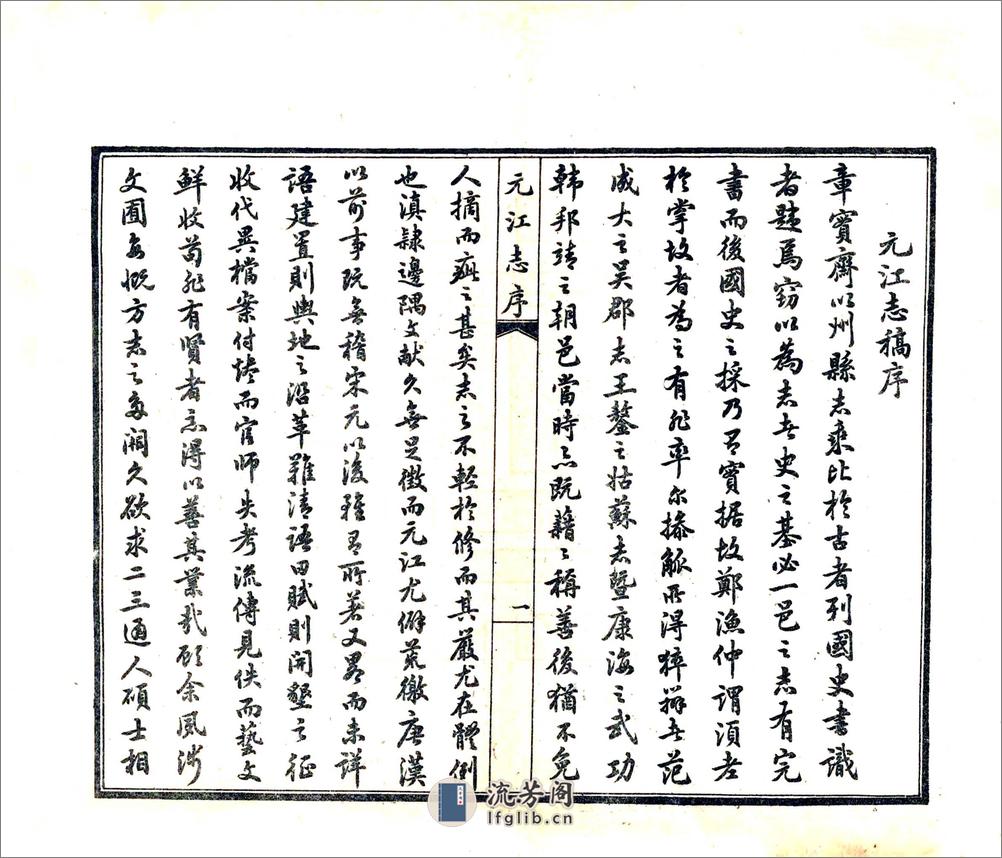 元江志稿序
章實齋以州縣志乘比於古者列國史書識
者韙焉竊以為志者史之基必一邑之志有完
書而後國史之採乃有實據故鄭漁仲謂須老
於掌故者為之有非率尔操觚所得猝辦者范
成大之吳郡志王鏊之姑蘇志暨康海之武功
韓邦靖之朝邑當時亦既藉〻稱善後猶不免
元江志序
一
人摘而疵之甚矣志之不輕於修而其嚴尤在體例
也滇隸邊隅文献久無足徵而元江尤僻荒徼唐漢
以前事既無稽宋元以後雖有所著又畧而未詳
語建置則輿地之沿革難清語田賦則開墾之征
收代異檔案付燼而官師失考流傳見佚而藝文
鮮收苟非有賢者得以善其業哉顧余風涉
文囿每慨方志之多闕久欲求二三通人碩士相
流芳阁
lfglib.cn